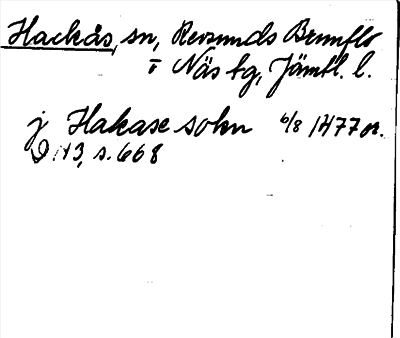 Hackås, sn, Revsunds Brunflo
i Näs tg, Jämtl. l.
j Hakase sokn 6/8 1477 or.
D N 3, s. 668